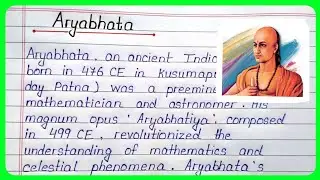 Aryabhata
Aryabhata, an ancient Indic
born in 476 CE in Kusumapu
day Patna) was a preemine
mathematician and astronomer. His
magnum opus 'Aryabhatiya', composed
in 499 CE, revolutionized the
understanding of mathematics and
celestial phenomena. Aryabhata's